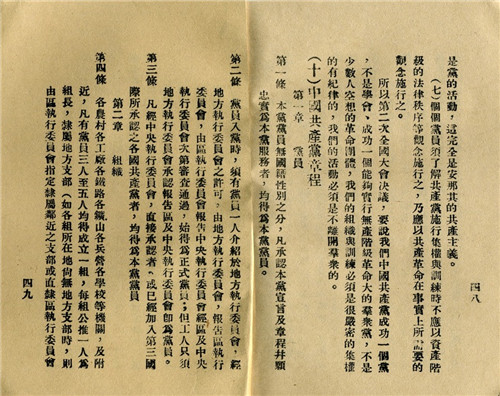 四八
是黨的活動，這完全是安那其的共產主義。
（七）個個黨員須了解共產黨施行集權與訓練時不應以資產階
級的法律秩序等觀念施行之，乃應以共產革命在事實上所需要的
觀念施行之。
所以第二次全國大會決議，要說我們中國共產黨成功一個黨
，不是學會、成功一個能夠實行無產階級革命大的羣衆黨，不是
少數人空想的革命團體，我們的組織與訓練必須是很嚴密的集權
的有紀律的，我們的活動必須是不離開羣衆的。
（十）中國共產黨章程
第一章　黨員
第一條　本黨黨員無國籍性別之分，凡承認本黨宣言及章程并願
忠實爲本黨服務者，均得爲本黨黨員。
第二條　黨員入黨時，須有黨員一人介紹於地方執行委員會，經
地方執行委員會之許可，由地方執行委員會，報告區執行
委員會，由區執行委員會報告中央執行委員會，經區及中央
執行委員會次第審查通過，始得爲正式黨員；但工人只須
地方執行委員會承認報告區及中央執行委員會卽爲黨員。
第三條　凡經中央執行委員會，直接承認者、或已經加入第三國
際所承認之各國共產黨者，均得爲本黨黨員
第二章　組織
第四條　各農村各工廠各鐵路各鑛山各兵營各學校等機關，及附
近，凡有黨員三人至五人均得成立一組，每組公推一人爲
組長，隸屬地方支部（如各組所在地尙無地方支部時，則
由區執行委員會指定隸屬鄰近之支部或直隸區執行委員會
四九